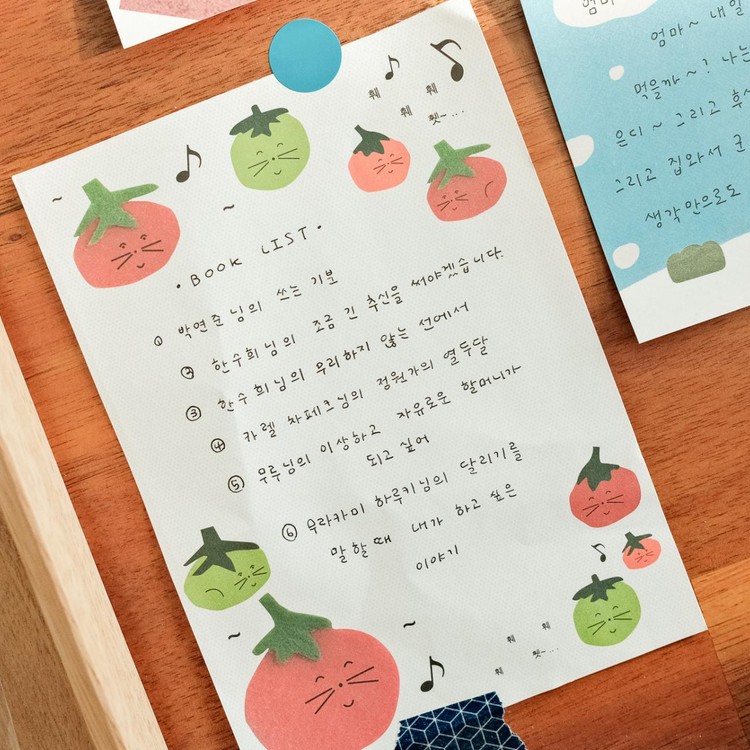 훼
훼 훼
휏~....
·BOOK LIST·
① 박연준님의 쓰는 기분
② 한수희님의 조금 긴 추신을 써야겠습니다.
③ 한수희님의 무리하지 않는 선에서
④ 카렐 차페크님의 정원가의 열두달
⑤ 무루님의 이상하고 자유로운 할머니가
되고 싶어
⑥ 무라카미 하루키님의 달리기를
말할때 내가 하고 싶은
이야기
훼 훼
훼 휏~....
엄마
엄마~ 내일
먹을까~? 나는
은디~ 그리고 후식
그리고 집와서
생각만으로도